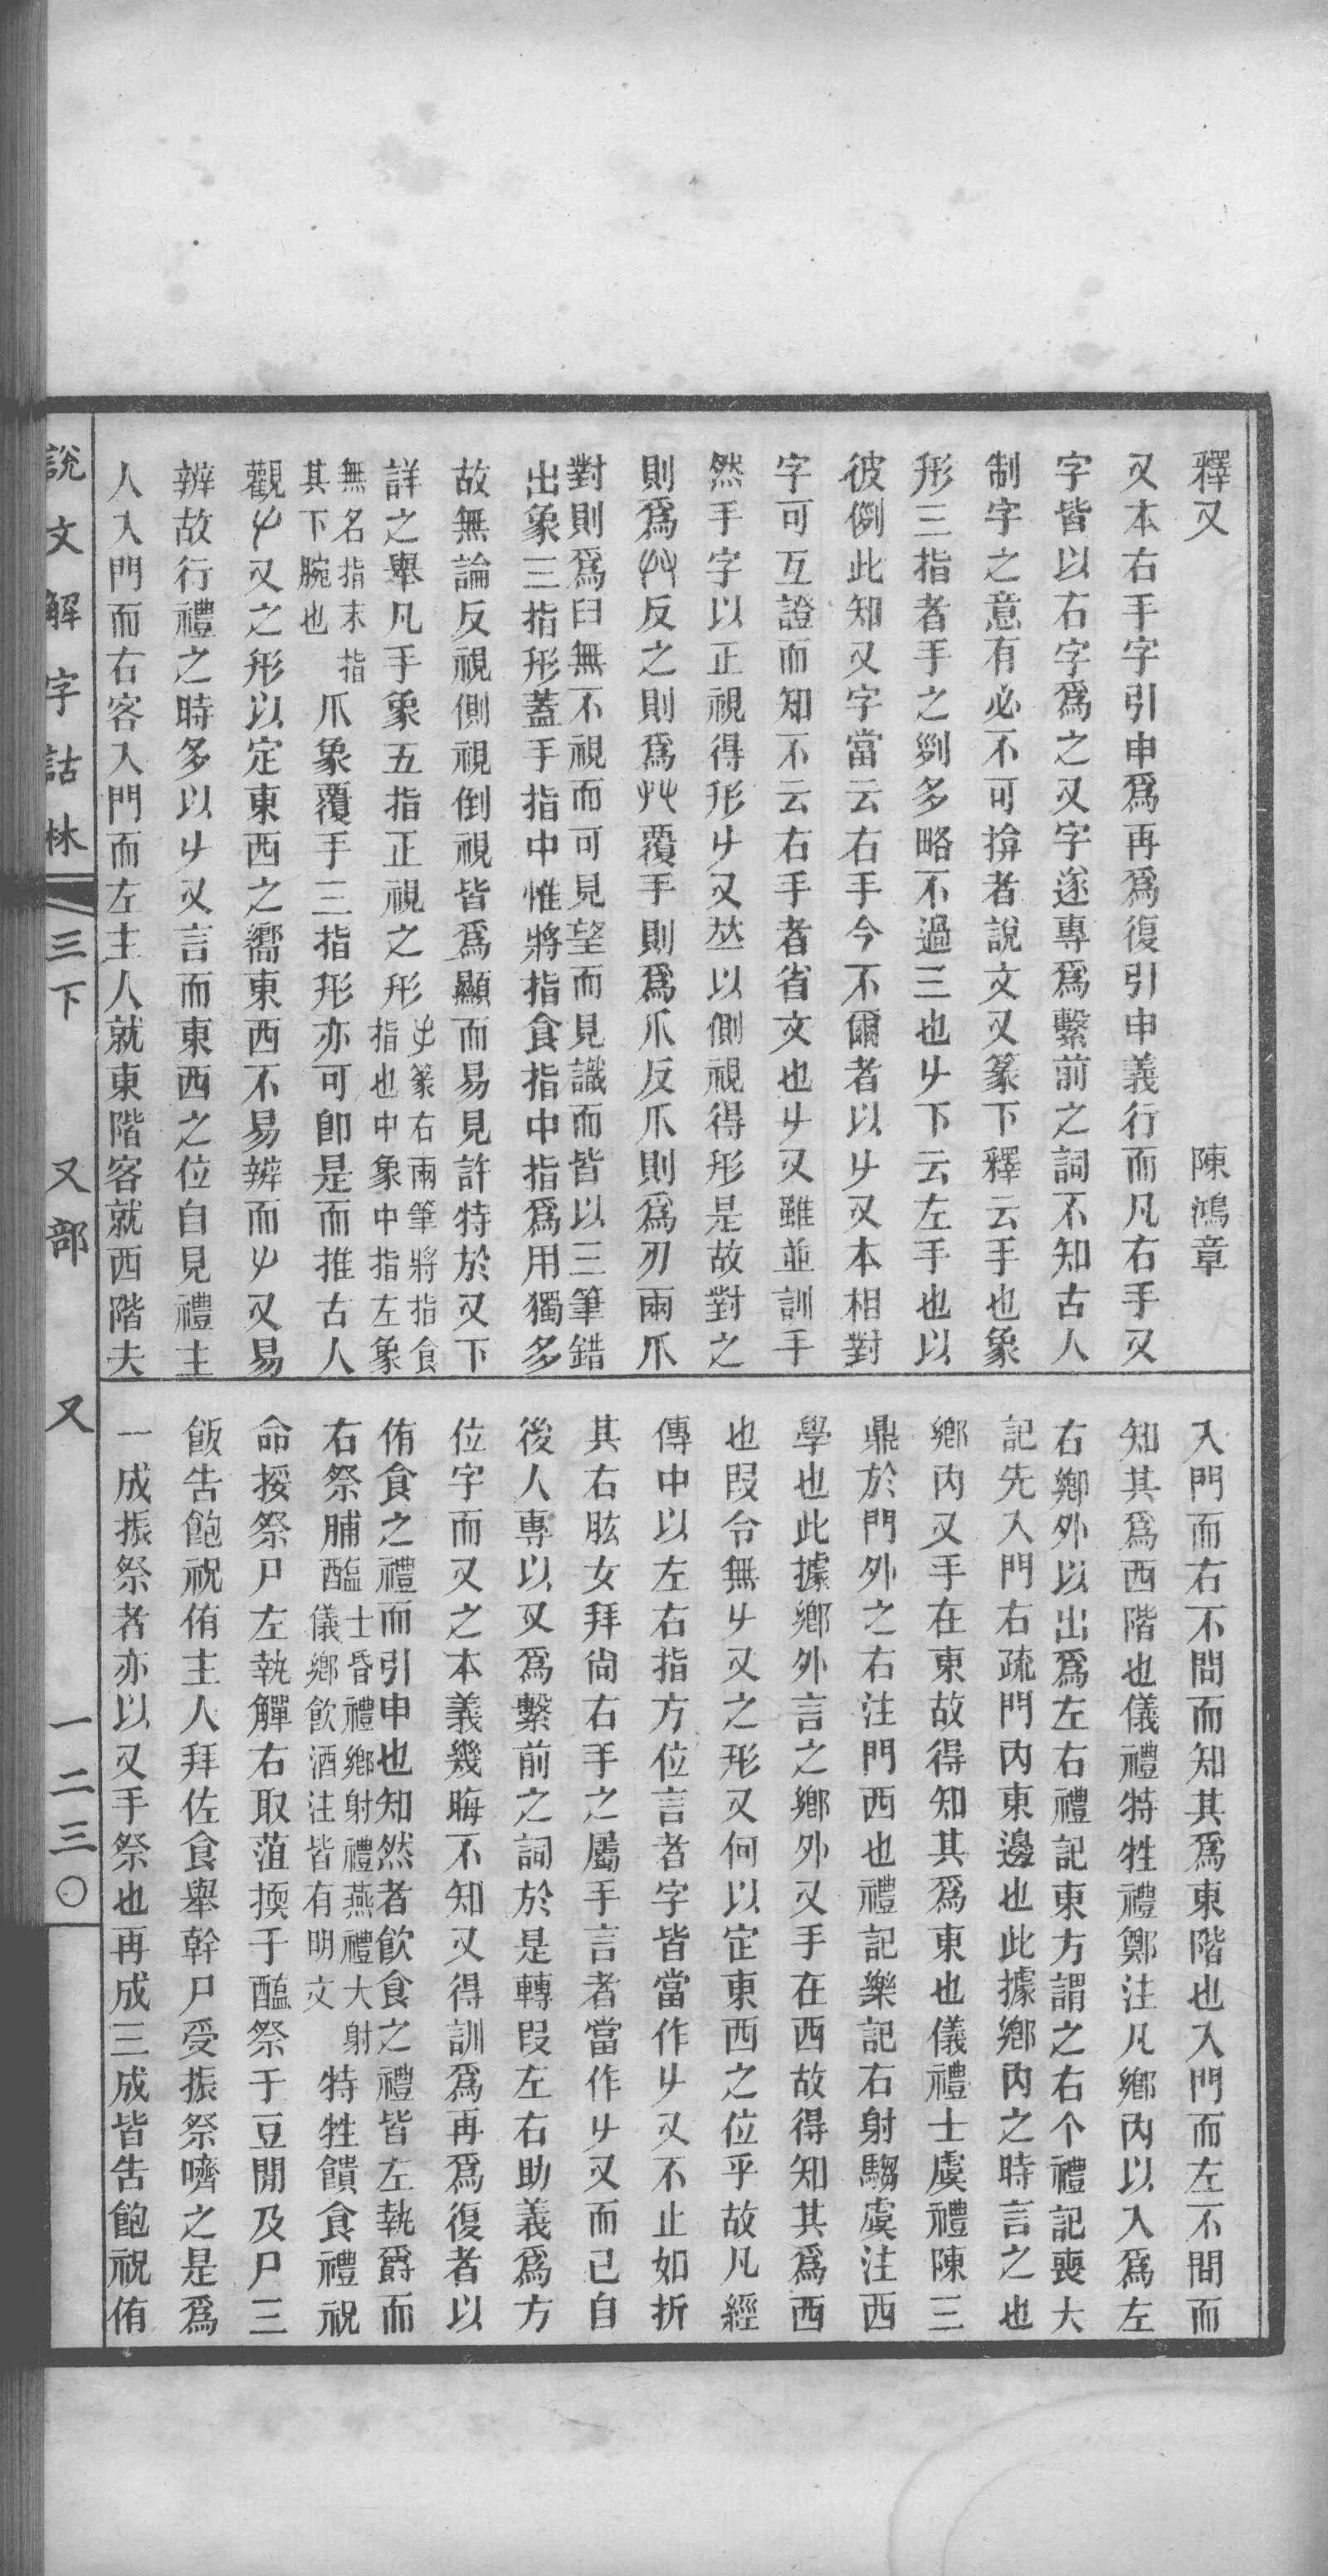 釋又 陳鴻章
又本右手字引申爲再爲復引申義行而凡右手又
字皆以右字爲之又字遂專爲繫前之詞不知古人
制字之意有必不可揜者說文又篆下釋云手也象
形三指者手之𠛱多略不過三也𠂇下云左手也以
彼例此知又字當云右手今不爾者以𠂇又本相對
字可互證而知不云右手者省文也𠂇又雖並訓手
然手字以正視得形𠂇又𠀤以側視得形是故對之
則爲𠬞反之則爲𠬜覆手則爲爪反爪則爲爪兩爪
對則爲𦥑無不視而可見望而見識而皆以三筆錯
出象三指形蓋手指中惟將指食指中指爲用獨多
故無論反視側視倒視皆爲顯而易見許特於又下
詳之舉凡手象五指正視之形手篆右兩筆將指食
指也中象中指左象
無名指末指
其下腕也爪象覆手三指形亦可卽是而推古人
觀𠂇又之形以定東西之嚮東西不易辨而𠂇又易
辨故行禮之時多以𠂇又言而東西之位自見禮主
人入門而右客入門而左主人就東階客就西階夫
入門而右不問而知其爲東階也入門而左不問而
知其爲西階也儀禮特牲禮鄭注凡鄉內以入爲左
右鄉外以出爲左右禮記東方謂之右个禮記喪大
記先入門右疏門內東邊也此據鄉內之時言之也
鄉內又手在東故得知其爲東也儀禮士虞禮陳三
鼎於門外之右注門西也禮記樂記右射騶虞注西
學也此據鄉外言之鄉外又手在西故得知其爲西
也叚令無𠂇又之形又何以定東西之位乎故凡經
傳中以左右指方位言者字皆當作𠂇又不止如折
其右肱女拜尙右手之屬手言者當作𠂇又而已自
後人專以又爲繫前之詞於是轉叚左右助義爲方
位字而又之本義幾晦不知又得訓爲再爲復者以
侑食之禮而引申也知然者飮食之禮皆左執爵而
右祭脯醢士昏禮鄉射禮燕禮大射
儀鄉飮酒注皆有明文特牲饋食禮祝
命挼祭尸左執觶右取菹㨎于醢祭于豆閒及尸三
飯告飽祝侑主人拜佐食舉幹尸受振祭嚌之是爲
一成振祭者亦以又手祭也再成三成皆告飽祝侑
說文解字詁林 三下 又部 又 一二三〇